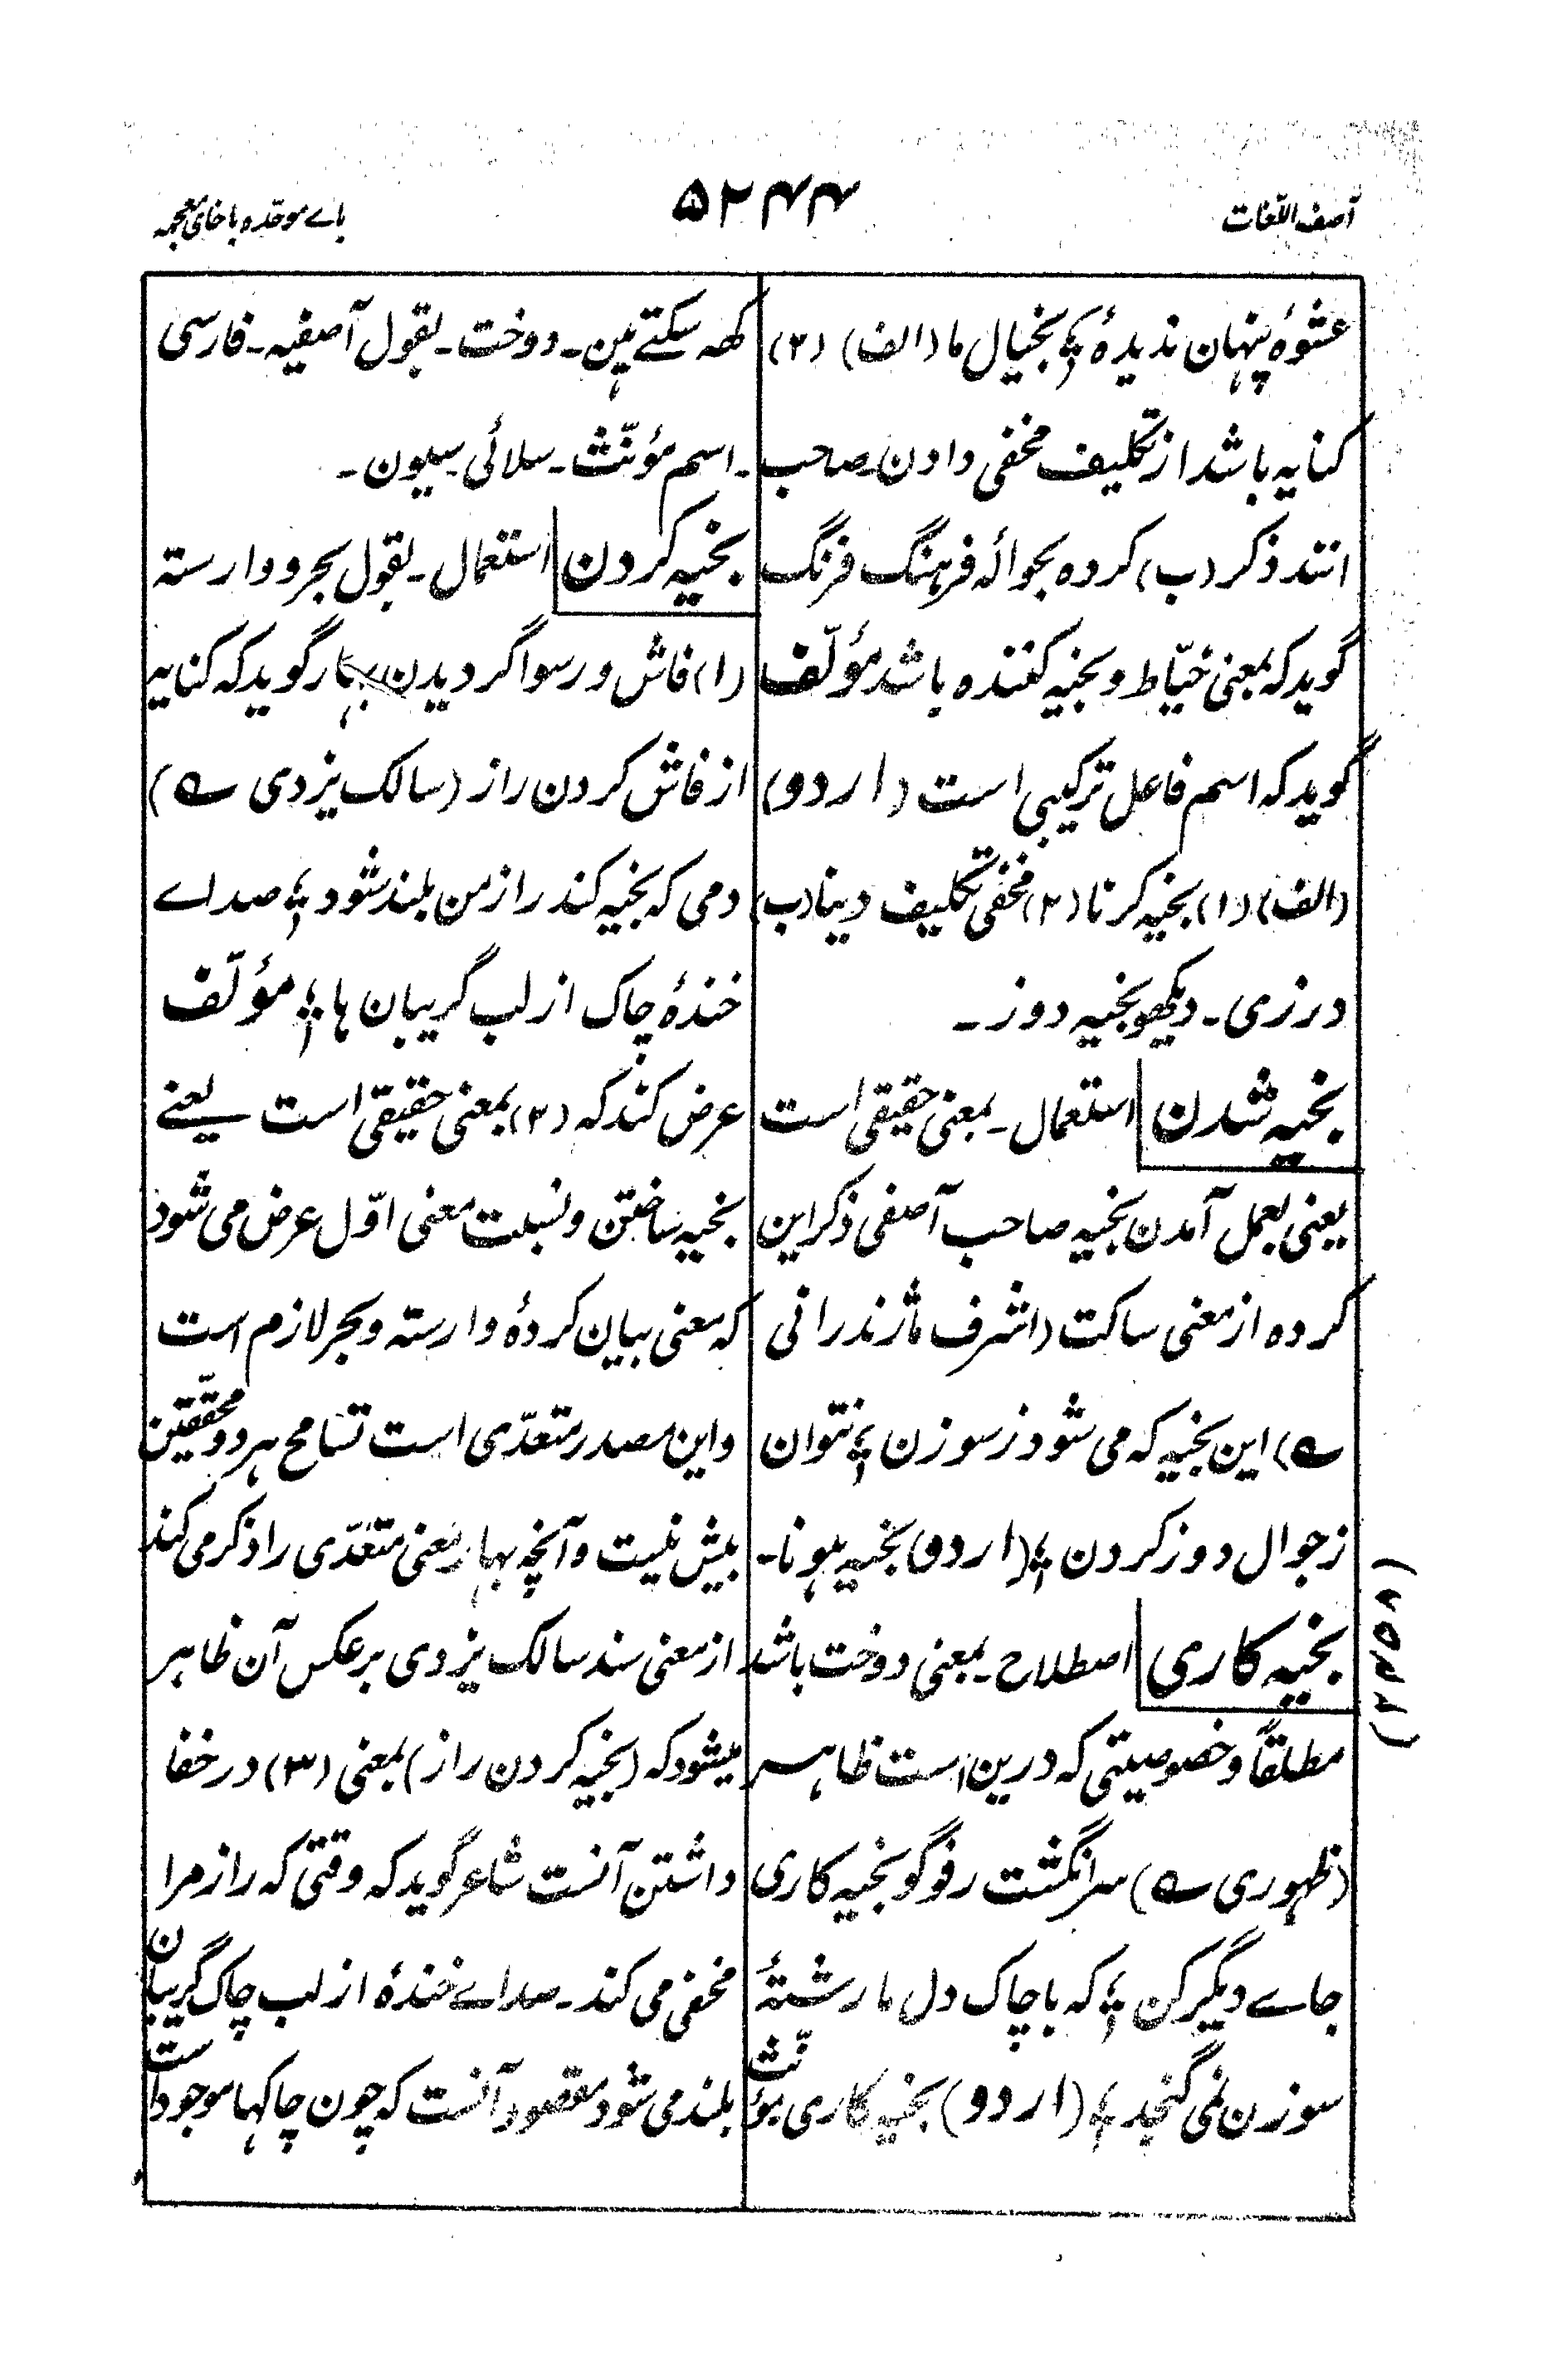 آصف اللّغات
۵۲۴۴
باے موحّدہ با خای معجمہ
عشوۂ پنہان ندیدۂ ؛ بخیال ما (الف) (۲)
کنایہ باشد از تکلیف مخفی دادن۔ صاحب
انند ذکر (ب) کردہ بحوالہ فرہنگ فرنگ
گوید کہ بمعنی خیّاط و بخیہ کنندہ باشد مؤلّف
گوید کہ اسم فاعل ترکیبی است (اردو)
(الف) (۱) بخیہ کرنا (۲) مخفی تکلیف دینا (ب)
درزی۔ دیکھو بخیہ دوز۔
بخیہ شدن استعمال۔ بمعنی حقیقی است
یعنی بعمل آمدن بخیہ صاحب آصفی ذکر این
کردہ از معنی ساکت (اشرف مازندرانی
؎) این بخیہ کہ می شود ز سوزن ؛ نتوان
ز جوال دوز کردن ؛ (اردو) بخیہ ہونا۔
بخیہ کاری اصطلاح۔ بمعنی دوخت باشد
مطلقاً و خصوصیتی کہ درین است ظاہر
(ظہوری ؎) سرانگشت رفوگو بخیہ کاری
جاے دیگر کن ؛ کہ با چاک دل ما رشتۂ
سوزن نمی گنجد ؛ (اردو) بخیہ کاری مؤنّث
(۲۴۵۸)
کہہ سکتے ہین۔ دوخت۔ بقول آصفیہ۔ فارسی
۔ اسم مؤنّث۔ سلائی۔ سیون۔
بخیہ کردن استعمال۔ بقول بحر و وارستہ
(۱) فاش و رسوا گردیدن بہار گوید کہ کنایہ
از فاش کردن راز (سالک یزدی ؎)
دمی کہ بخیہ کند راز من بلند شود ؛ صداے
خندۂ چاک از لب گریبان ہا ؛ مؤلّف
عرض کند کہ (۲) بمعنی حقیقی است یعنے
بخیہ ساختن و نسبت معنی اوّل عرض می شود
کہ معنی بیان کردۂ وارستہ و بحر لازم است
و این مصدر متعدّی است تسامح ہر دو محقّقین
بیش نیست و آنچہ بہار معنی متعدّی را ذکر می کند
از معنی سند سالک یزدی برعکس آن ظاہر
میشود کہ (بخیہ کردن راز) بمعنی (۳) در خفا
داشتن آنست شاعر گوید کہ وقتی کہ راز مرا
مخفی می کند۔ صداے خندۂ از لب چاک گریبان
بلند می شود مقصود آنست کہ چون چاکہا موجود است